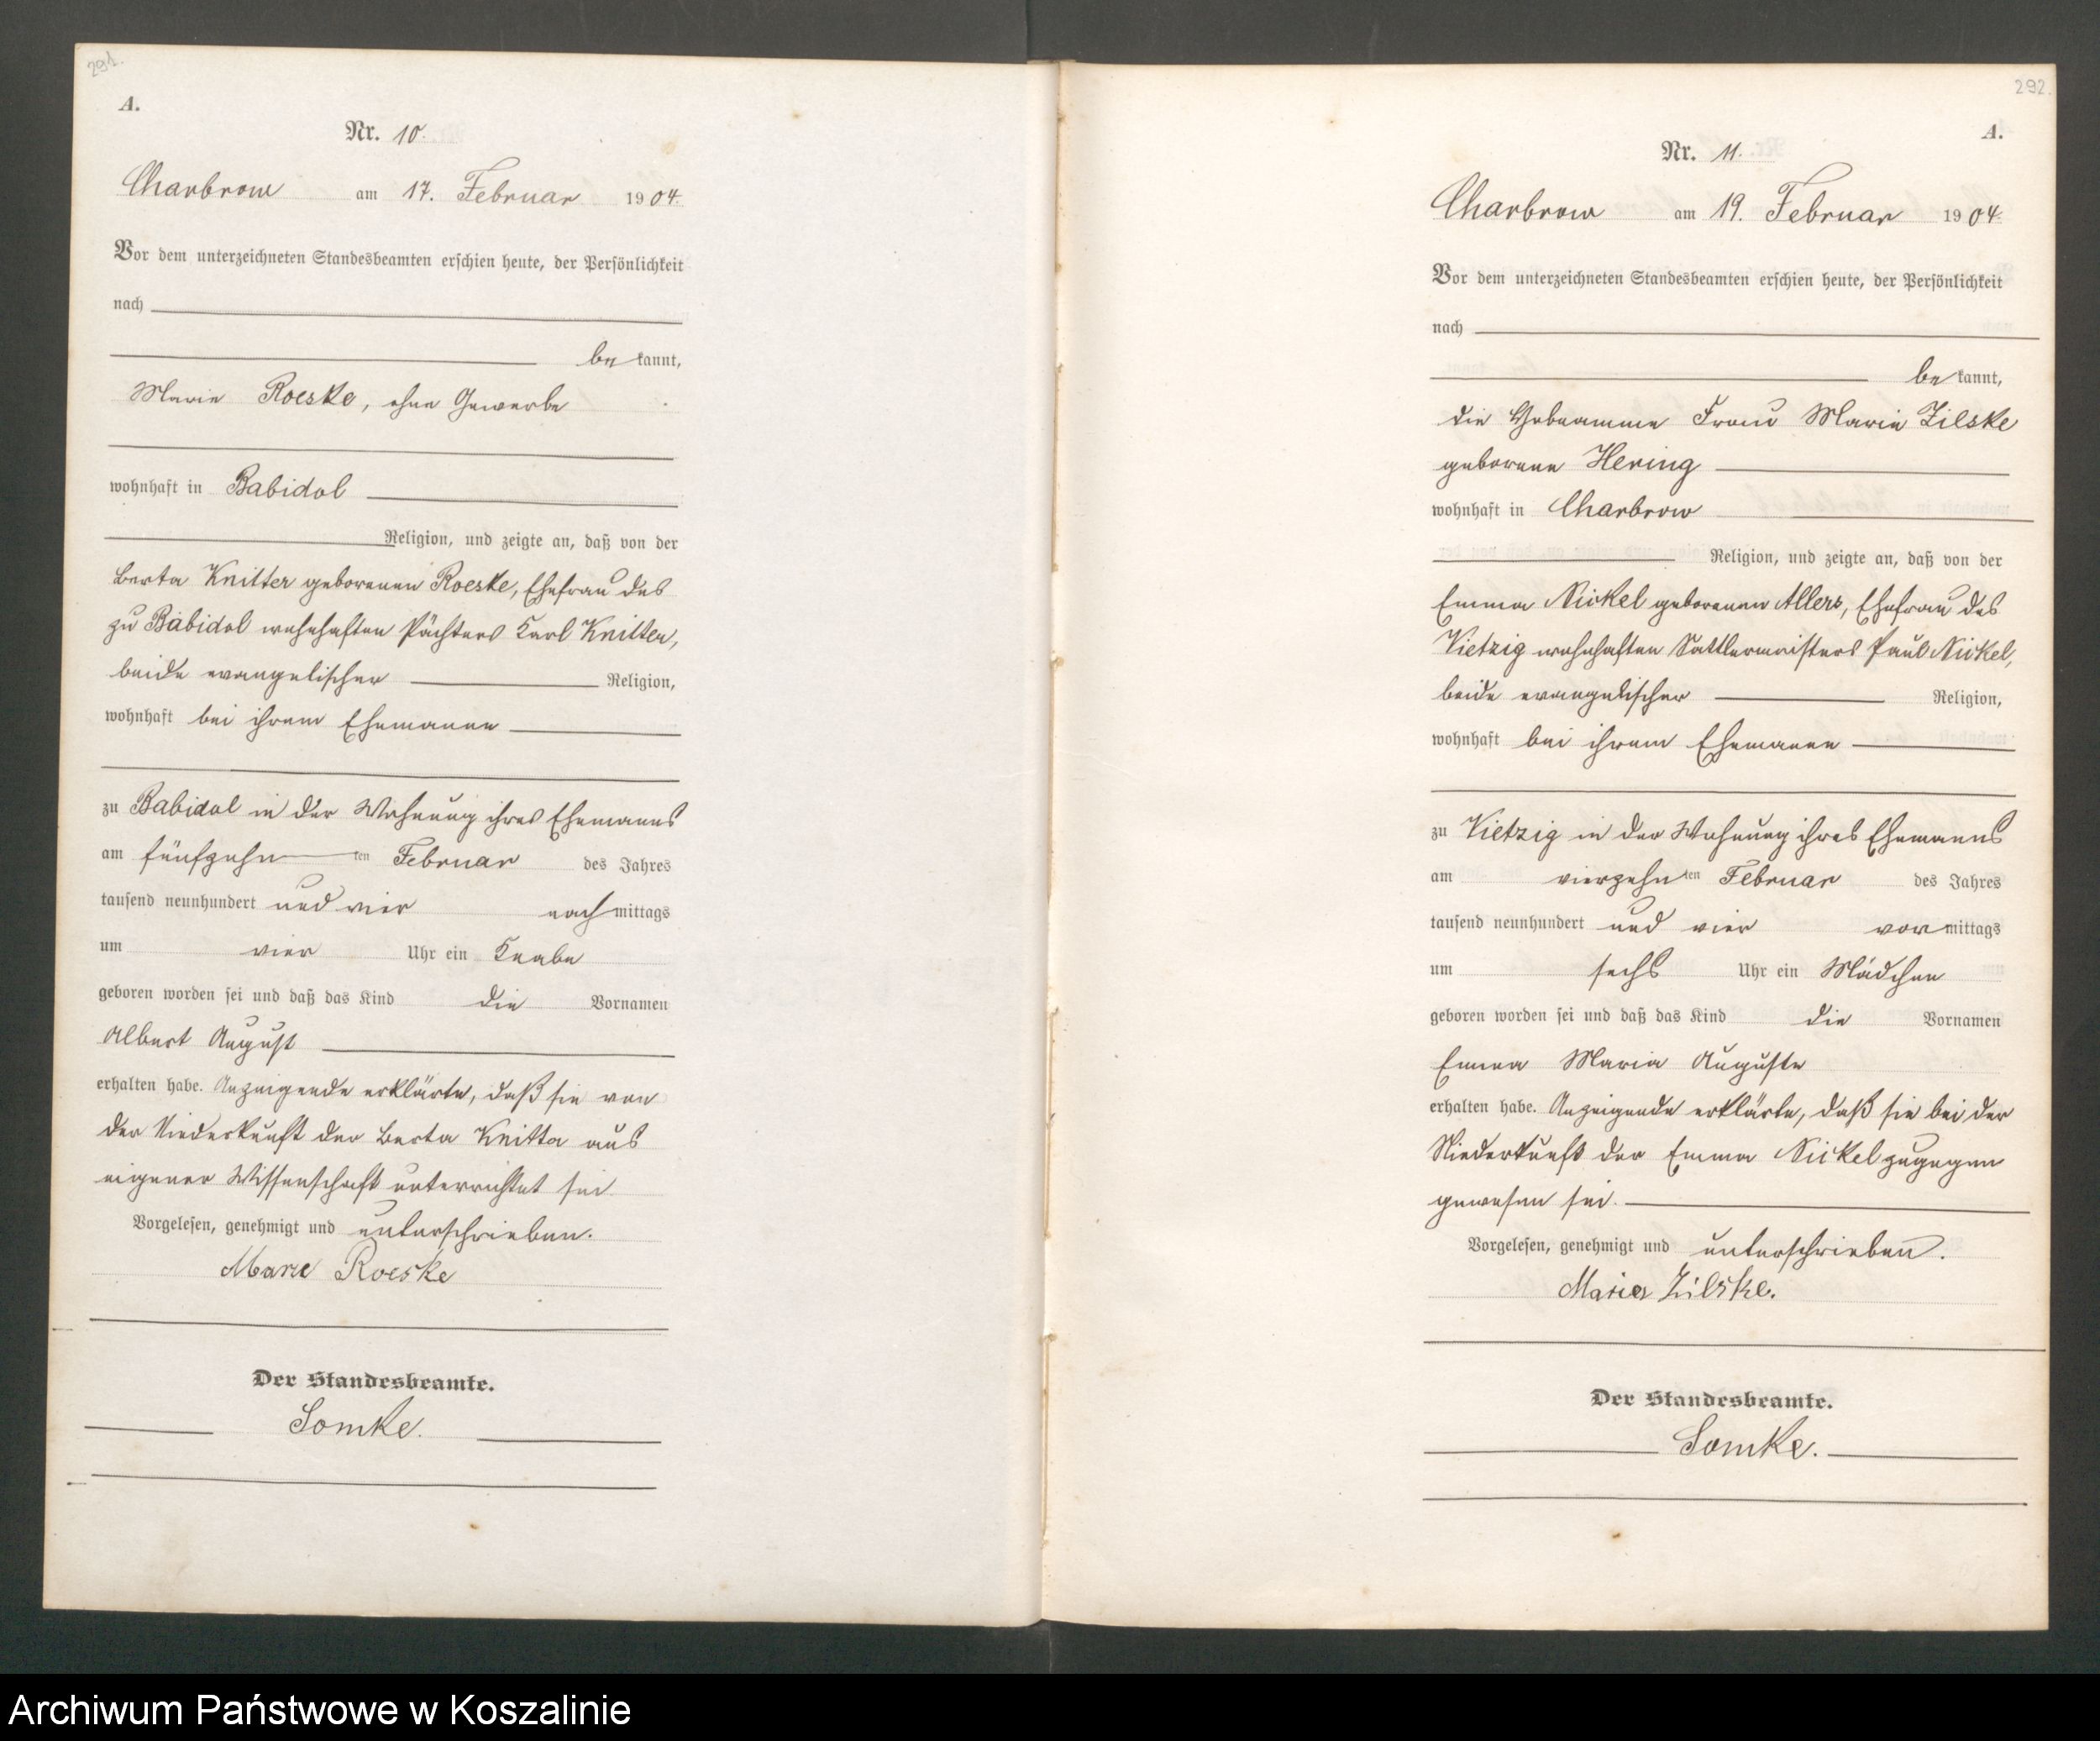 291.
A.
Nr. 10.
Charbrow am 17. Februar 1904.
Vor dem unterzeichneten Standesbeamten erschien heute, der Persönlichkeit
nach
be kannt,
Marie Roeske, ohne Gewerbe
wohnhaft in Babidol
Religion, und zeigte an, daß von der
Berta Knitter geborenen Roeske, Ehefrau des
zu Babidol wohnhaften Pächters Karl Knitter,
beide evangelischer Religion,
wohnhaft bei ihrem Ehemanne
zu Babidol in der Wohnung ihres Ehemanns
am fünfzehn ten Februar des Jahres
tausend neunhundert und vier nachmittags
um vier Uhr ein Knabe
geboren worden sei und daß das Kind die Vornamen
Albert August
erhalten habe. Anzeigende erklärte, daß sie von
der Niederkunft der Berta Knitter aus
eigener Wissenschaft unterrichtet sei
Vorgelesen, genehmigt und unterschrieben.
Marie Roeske
Der Standesbeamte.
Somke.
292.
A.
Nr. 11.
Charbrow am 19. Februar 1904.
Vor dem unterzeichneten Standesbeamten erschien heute, der Persönlichkeit
nach
be kannt,
die Hebeamme Frau Marie Zilske
geborene Hering
wohnhaft in Charbrow
Religion, und zeigte an, daß von der
Emma Nickel geborenen Allers, Ehefrau des
Vietzig wohnhaften Sattlermeisters Paul Nickel,
beide evangelischer Religion,
wohnhaft bei ihrem Ehemanne
zu Vietzig in der Wohnung ihres Ehemanns
am vierzehn ten Februar des Jahres
tausend neunhundert und vier vormittags
um sechs Uhr ein Mädchen
geboren worden sei und daß das Kind die Vornamen
Emma Maria Auguste
erhalten habe. Anzeigende erklärte, daß sie bei der
Niederkunft der Emma Nickel zugegen
gewesen sei.
Vorgelesen, genehmigt und unterschrieben.
Marie Zilske.
Der Standesbeamte.
Somke.
Archiwum Państwowe w Koszalinie